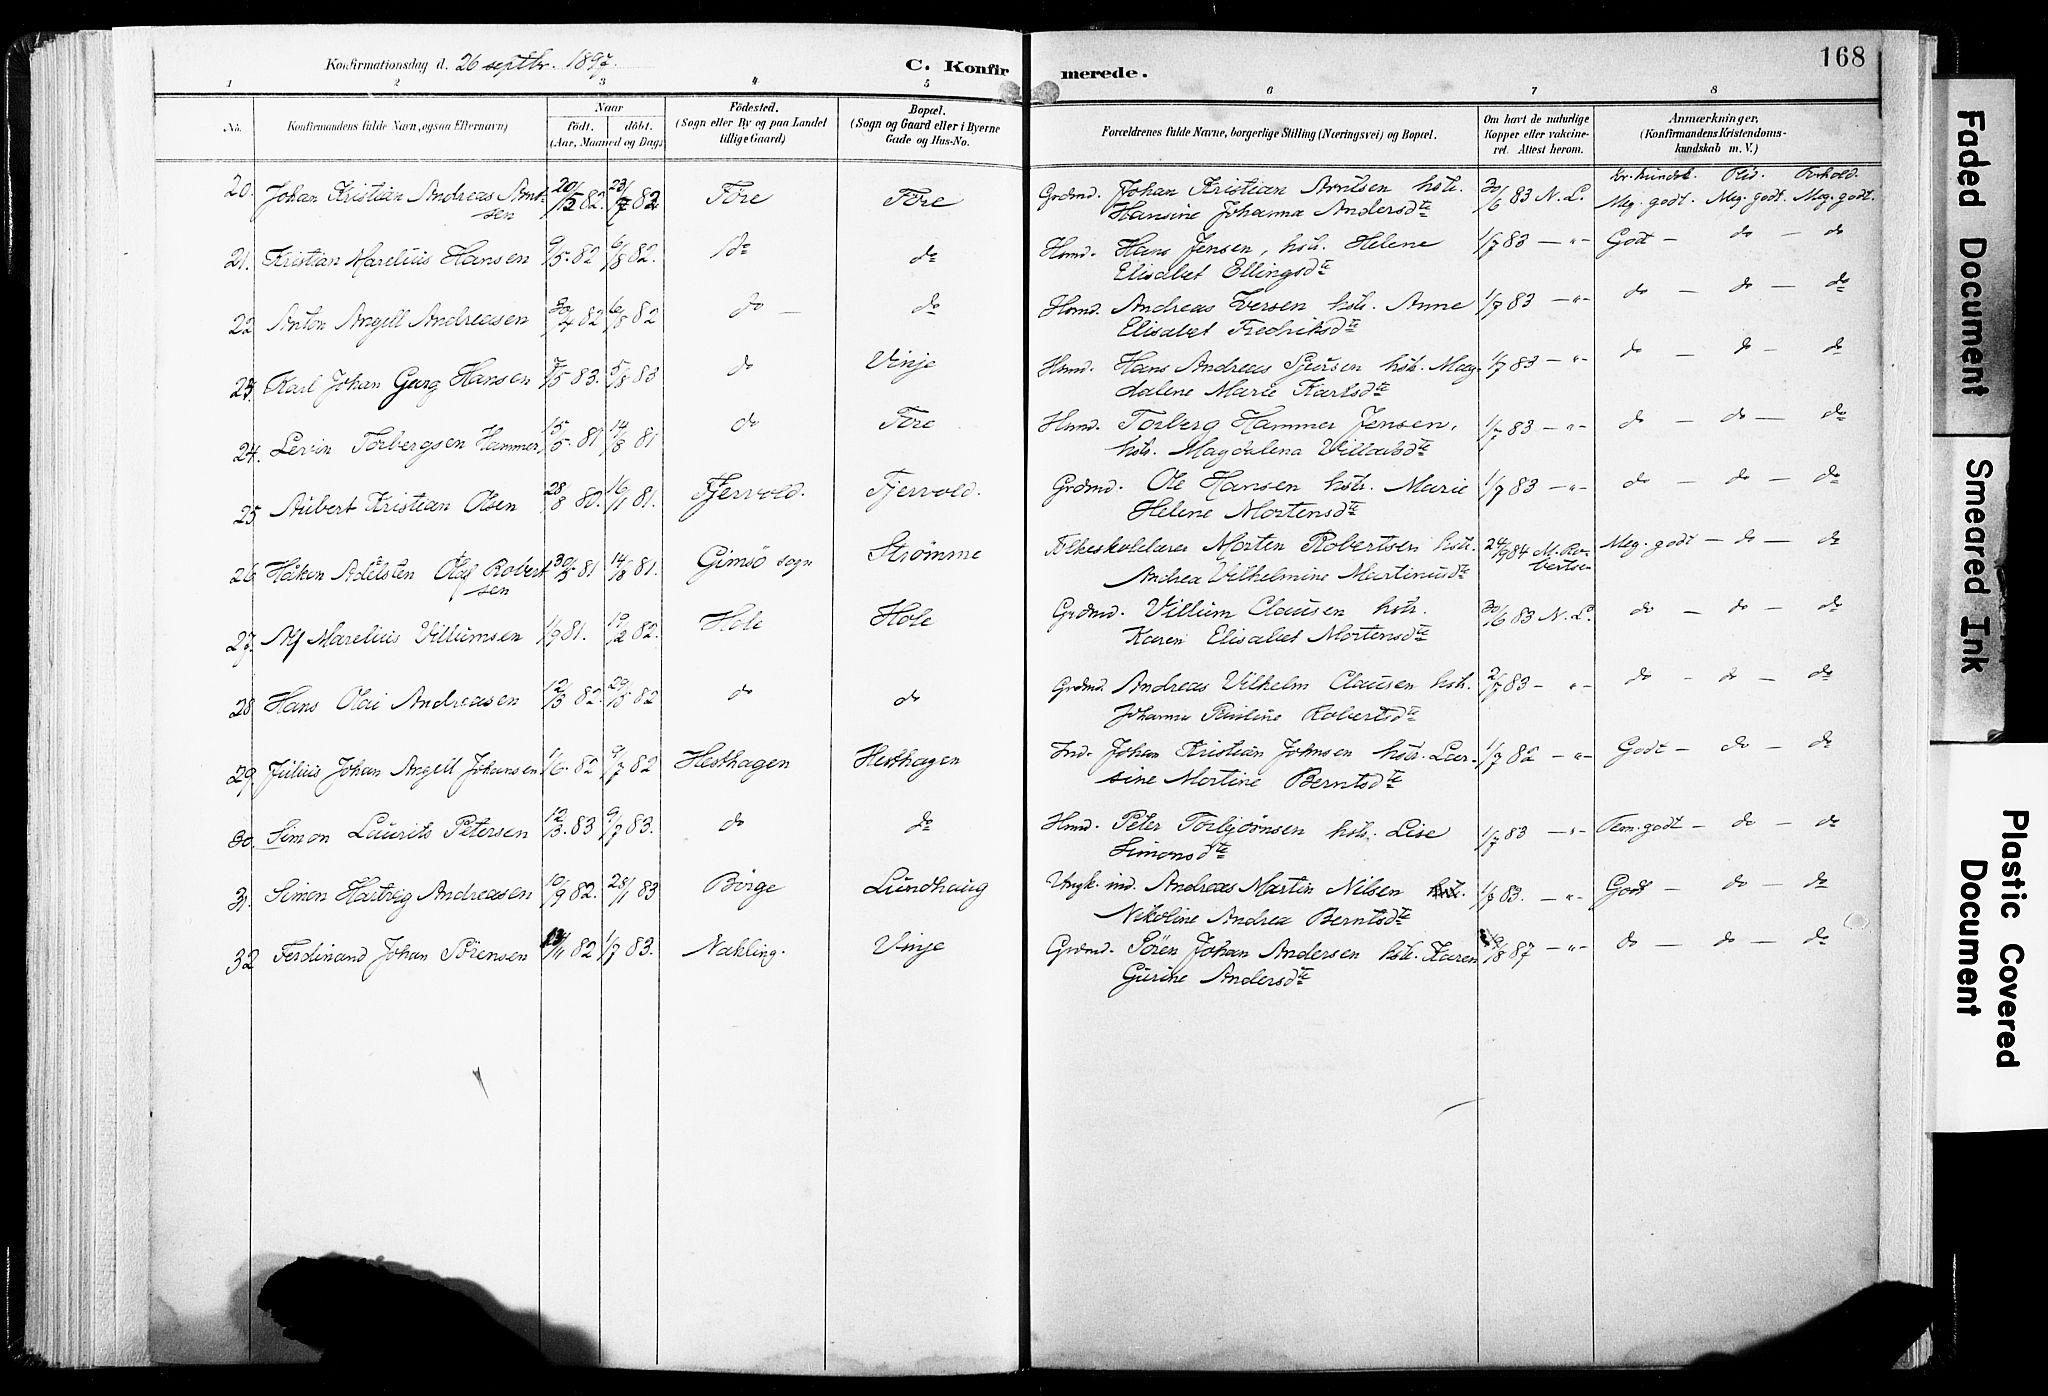 Konfirmationsdag d. 26 septbr. 1897. C. Konfirmerede. 168
1 2 3 4 5 6 7 8
No. Konfirmandens fulde Navn, ogsaa Efternavn) Naar født. døbt. (Aar, Maaned og Dag) Födested. (Sogn eller By og paa Landet tillige Gaard) Bopæl. (Sogn og Gaard eller i Byerne Gade og Hus-No. Forældrenes fulde Navne, borgerlige Stilling (Næringsvei) og Bopæl. Om havt de naturlige Kopper eller vakcineret. Attest herom. Anmærkninger, (Konfirmandens Kristendomskundskab m. V.)
Kr. kundsk. Flid. Forhold.
20. Johan Kristian Andreas Arntsen 20/12 82. 23/7 82 Føre Føre Grdmd. Johan Kristian Arntsen hstr. 30/6 83 N. L. Meg. godt. Meg. godt. Meg. godt.
Hansine Johanna Andersdtr
21. Kristian Marelius Hansen 9/5 82 6/8 82. do do Hsmd. Hans Jensen, hstr. Helene 1/7 83 — " — Godt — do — do
Elisabet Ellingsdtr
22 Anton Angell Andreasen 30/4 82 6/8 82 do — do Hsmd. Andreas Iversen hstr. Anne 1/7 83 — " — do — do — do
Elisabet Fredriksdtr
23. Karl Johan Georg Hansen 7/5 83. 5/8 83 do Vinje Hsmd. Hans Andreas Sjursen hstr. Mag- 1/7 83 — " — do — do — do
dalene Marie Karlsdtr
24. Levin Torbergsen Hammer, 15/5 81 14/8 81 do Føre Hsmd. Torberg Hammer Jensen, 1/7 83 — " — do — do — do
hstr. Magdalena Villadsdtr
25. Aubert Kristian Olsen 28/8 80. 16/1 81. Fjervold. Fjervold. Grdmd. Ole Hansen hstr. Marie 1/7 83 — " — do — do — do
Helene Mortensdtr
26 Håken Adelsten Olaf Robertsen 30/5 81 14/8 81. Gimsø sogn Strømme Folkeskolelærer Morten Robertsen hstr. 24/9 84 M. Robertsen Meg. godt — do — do
Andrea Vilhelmine Martinusdtr
27. Alf Marelius Villumsen 1/9 81. 19/2 82. Hole Hole Grdmd. Villum Clausen hstr. 30/6 83 N. L. do — do — do
Karen Elisabet Mortensdtr
28. Hans Olai Andreasen 12/3 82. 29/5 82 do do Grdmd. Andreas Vilhelm Clausen hstr. 2/7 83 — " — do — do — do
Johanna Pauline Robertsdtr
29. Julius Johan Angell Johansen 1/6 82 9/7 82 Hesthagen Hesthagen Ind. Johan Kristian Johnsen hstr. Lar- 1/7 82 — " — Godt — do — do
sine Martine Berntsdtr
30. Simon Laurits Petersen 12/3 83 9/7 83. do do Hsmd. Peter Torbjørnsen hstr. Lise 1/7 83 — " — Tem. godt — do — do
Simonsdtr
31. Simon Hartvig Andreasen 10/9 82. 28/1 83 Börge Lundhaug Ungk. ind. Andreas Martin Nilsen 1/7 83. — " — Godt — do — do
Nikoline Andrea Berntsdtr
32 Ferdinand Johan Sörensen 82 1/7 83. Nakling. Vinje Grdmd. Sören Johan Andersen hstr. Karen 87 — " — do — do — do
Gurine Andersdtr
Faded Document
Smeared Ink
Plastic Covered
Document